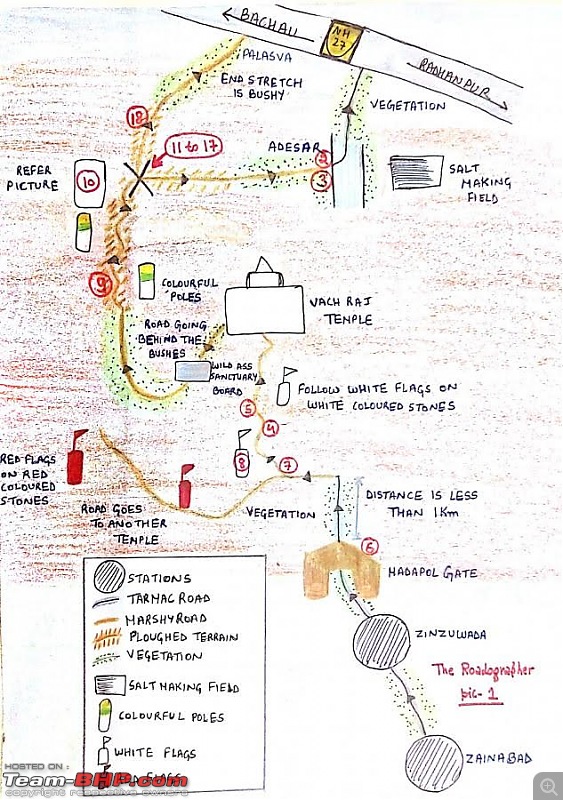 BACHAU
NH
27
RADHANPUR
PALASVA
END STRETCH
IS BUSHY
VEGETATION
18
11 to 17
ADESAR
2
3
REFER
PICTURE
10
SALT
MAKING
FIELD
9
COLOURFUL
POLES
VACH RAJ
TEMPLE
ROAD GOING
BEHIND THE
BUSHES
WILD ASS
SANCTUARY
BOARD
FOLLOW WHITE FLAGS ON
WHITE COLOURED STONES
5
4
8
7
RED FLAGS
ON RED
COLOURED
STONES
ROAD GOES
TO ANOTHER
TEMPLE
VEGETATION
DISTANCE IS LESS
THAN 1Km
6
HADAPOL GATE
STATIONS
TARMAC ROAD
MARSHY ROAD
PLOUGHED TERRAIN
VEGETATION
SALT MAKING FIELD
COLOURFUL POLES
WHITE FLAGS
RED FLAGS
ZINZUWADA
The Roadographer
pic-1
ZAINABAD
HOSTED ON :
Team-BHP.com
copyright respective owners